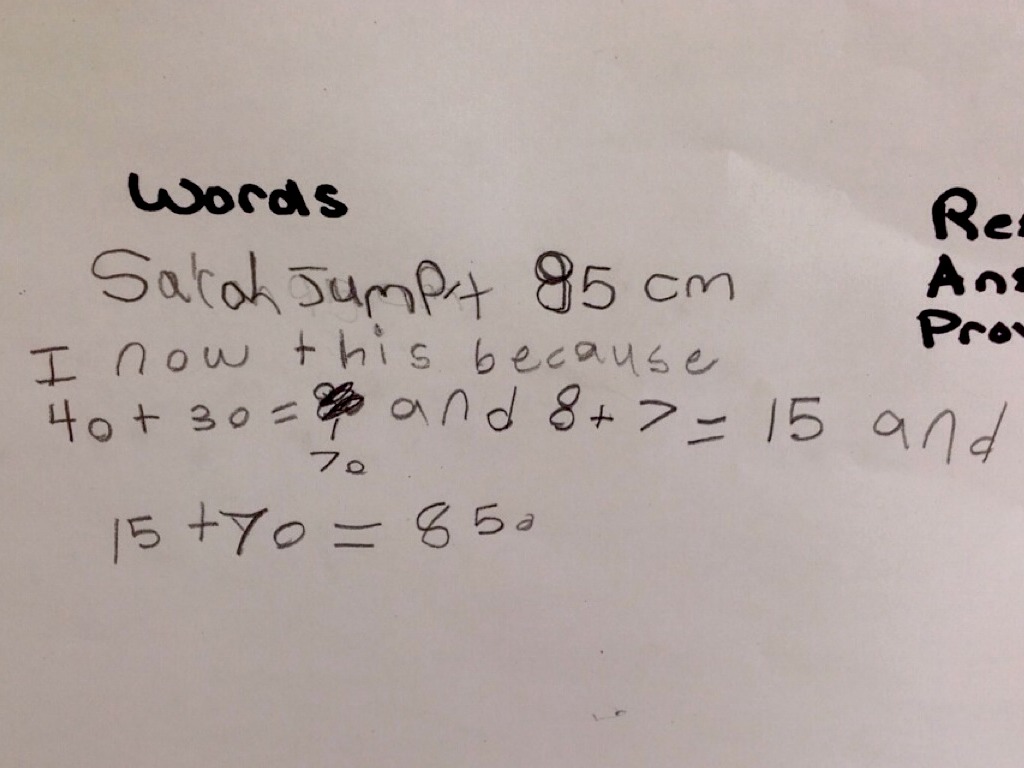 Words
Sarah Jumpt 85 cm
I now this because
40 + 30 = 70 and 8 + 7 = 15 and
15 + 70 = 85.
Res
Ans
Prov